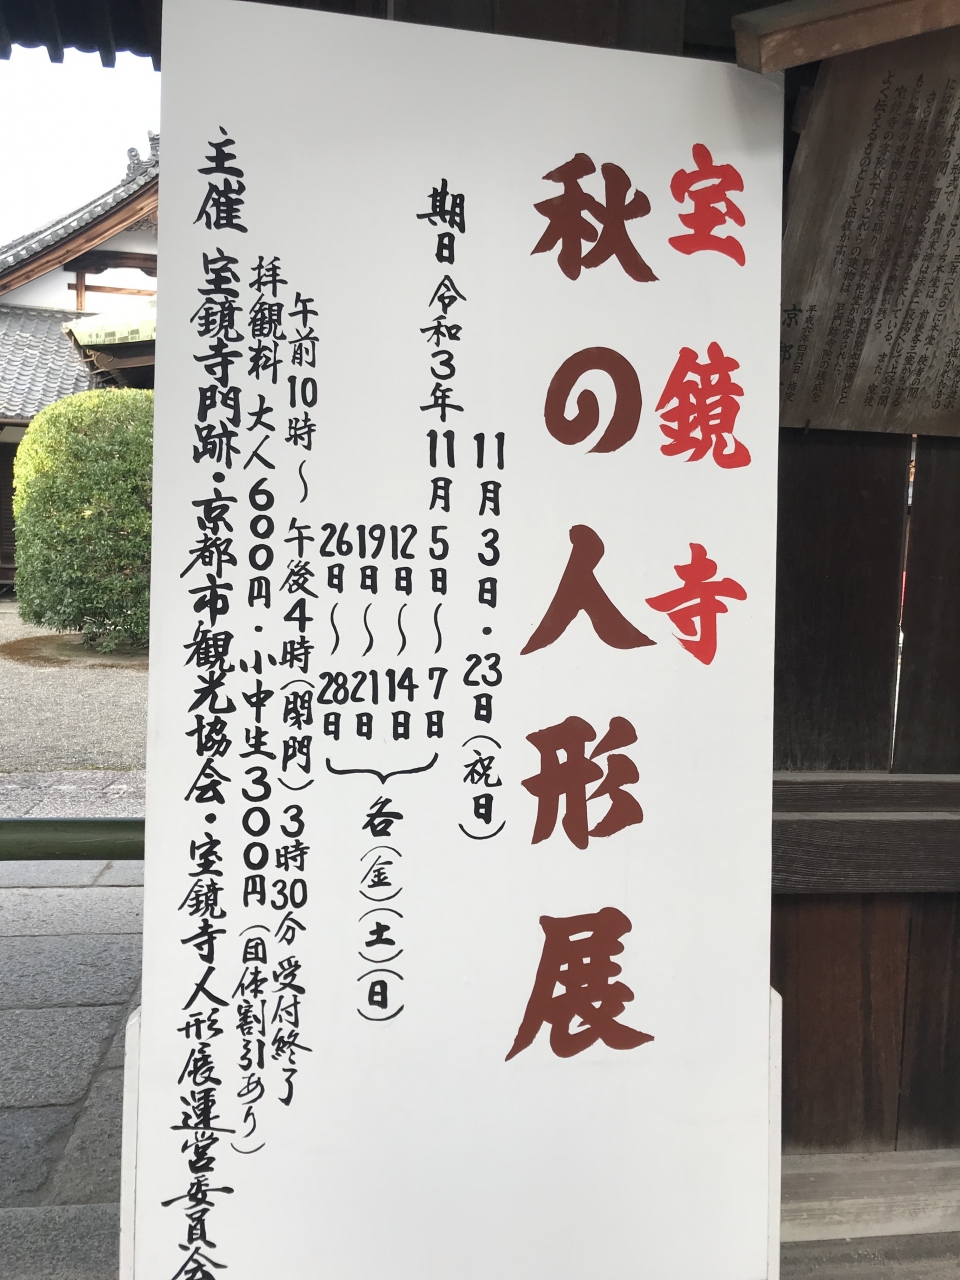 宝鏡寺
秋の人形展
11月3日・23日(祝日)
期日 令和3年11月5日〜7日
12日〜14日
19日〜21日
26日〜28日
各(金)(土)(日)
午前10時〜午後4時(閉門)3時30分受付終了
拝観料 大人600円・小中生300円(団体割引あり)
主催 宝鏡寺門跡・京都市観光協会・宝鏡寺人形展運営委員会